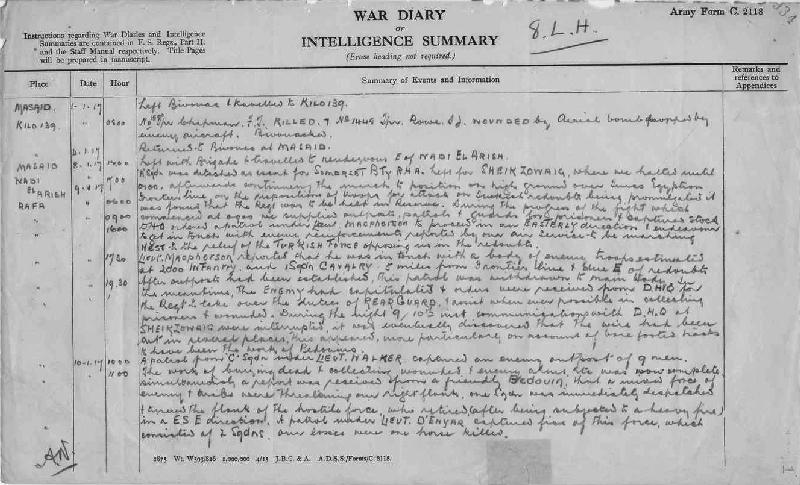 WAR DIARY
OF
INTELLIGENCE SUMMARY
(Erase heading not required.)
8. L. H.
Army Form C. 2118
Instructions regarding War Diaries and Intelligence
Summaries are contained in F. S. Regs., Part II.
and the Staff Manual respectively. Title Pages
will be prepared in manuscript.
Place Date Hour Summary of Events and Information Remarks and references to Appendices
MASAID. 1-1-17 Left Bivouac & travelled to KILO 139.
KILO 139. 0800 Tpr Chapman. F.J. KILLED, & No 1448 Tpr. Rowe. WOUNDED by Aerial bomb dropped by
enemy aircraft. Bivouacked.
Returned to Bivouac at MASAID.
MASAID 8-1-17 Left with Brigade & travelled to rendezvous E of WADI EL ARISH.
WADI EL ARISH Sqdn was detached as escort for SOMERSET Bty R.H.A. Left for SHEIK ZOWAIG, where we halted until
9-1-17 afterwards continuing the march to position on high ground over Egyptian
RAFA 0600 Frontier line the preparations for attack on Turkish redoubts being promulgated it
was found that the Regt was to be held in Reserve. During the progress of the fight which
0900 commenced at we supplied outposts, patrols & guards for prisoners & captured stock
1600 DHQ ordered a patrol under Lieut. MACPHERSON to proceed in an EASTERLY direction & endeavour
to get in touch with enemy reinforcements reported by our Air Service to be marching
WEST to the relief of the TURKISH FORCE opposing us in the redoubts.
1730 LIEUT. MACPHERSON reported that he was in touch with a body of enemy troops estimated
at 2000 INFANTRY and 1 Sqdn CAVALRY 5 miles from Frontier line & due E of redoubts
After outposts had been established, this patrol was withdrawn to main body. In
1930 the meantime, The ENEMY had capitulated & orders were received from D.H.Q for
the Regt to take over the duties of REAR GUARD, & assist when ever possible in collecting
prisoners & wounded. During the night 9/10th inst communications with D.H.Q at
SHEIK ZOWAIG were interrupted, it was eventually discovered that the wire had been
cut in several places, this appeared, more particularly on account of bare footed tracks
to have been the work of Bedouins.
10-1-17 1000 A patrol from "C" Sqdn under LIEUT. WALKER captured an enemy outpost of 9 men.
1100 The work of burying dead & collecting wounded & enemy arms, etc was now complete
simultaneously a report was received from a friendly BEDOUIN, that a mixed force of
enemy & Arabs were threatening our right flank, one Sqdn was immediately despatched
& turned the flank of the hostile force, who retired (after being subjected to a heavy fire)
in a E S E direction. A patrol under LIEUT. captured five of this force, which
consisted of 2 Sqdns. our losses were one horse killed.